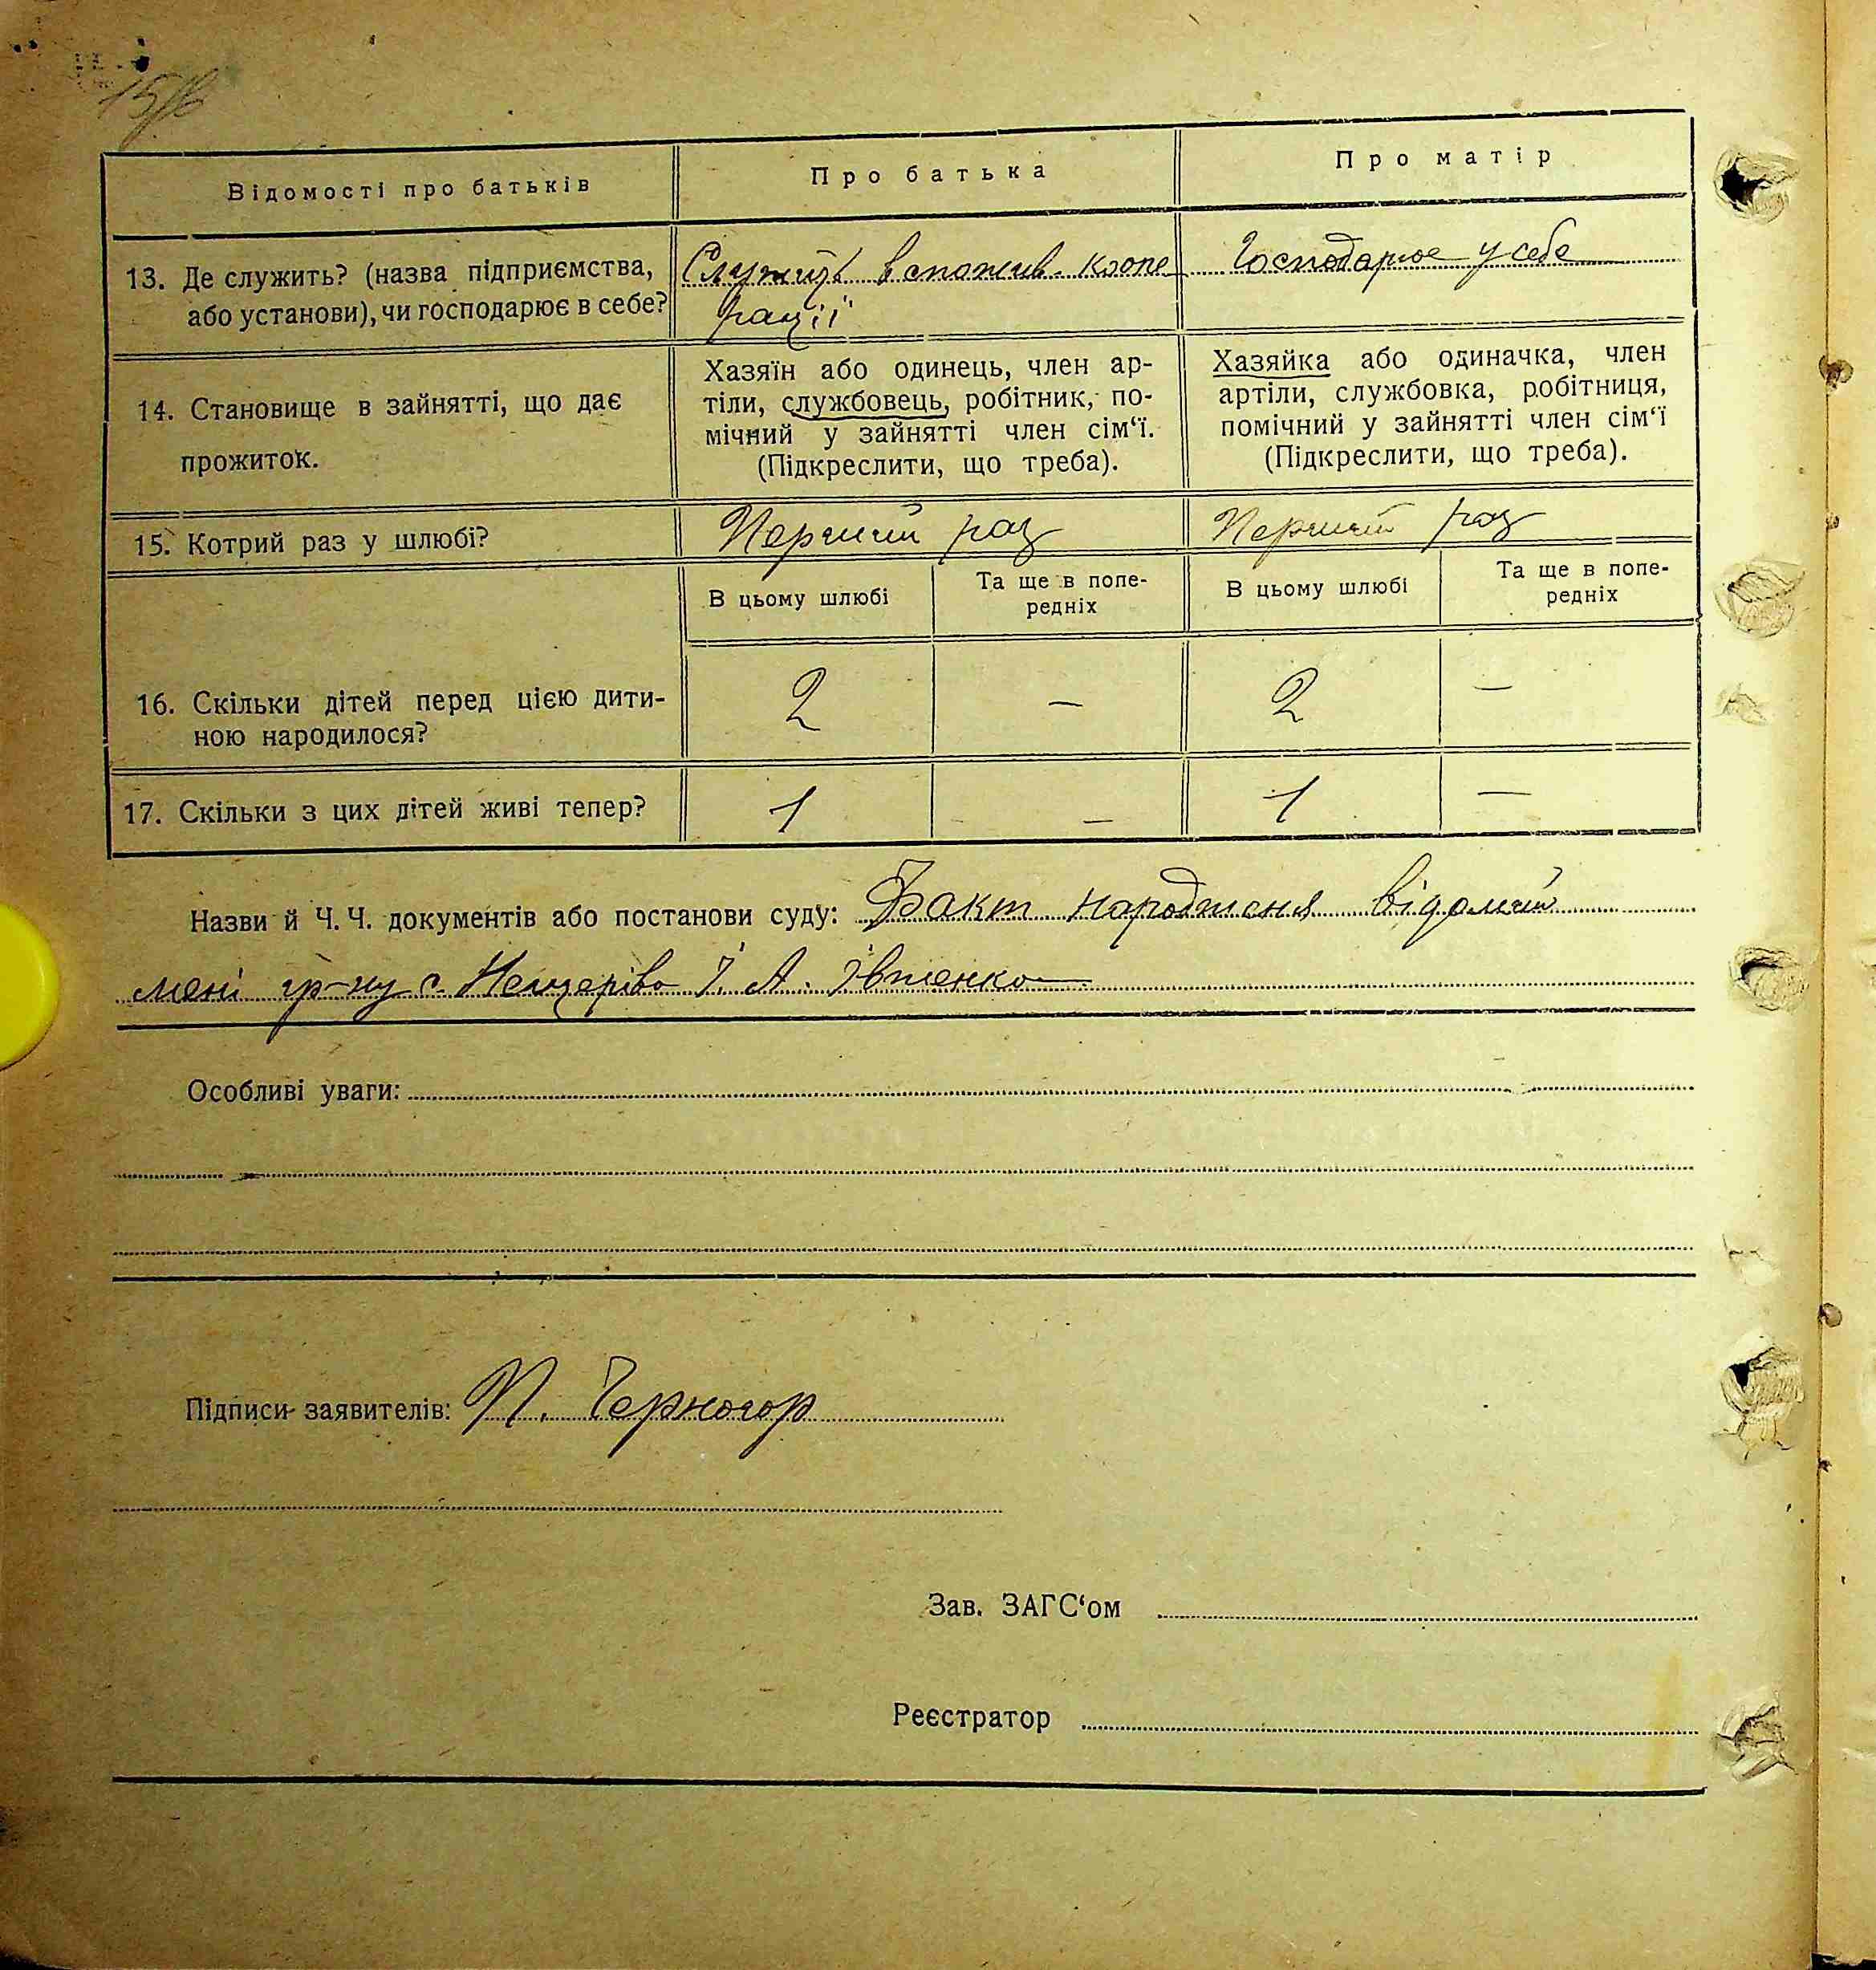 15/в
Відомості про батьків
Про батька
Про матір
13. Де служить? (назва підприємства, або установи), чи господарює в себе?
Служить в спожив. коопе
рації
Господарює у себе
14. Становище в зайнятті, що дає прожиток.
Хазяїн або одинець, член ар-
тіли, службовець, робітник, по-
мічний у зайнятті член сім‘ї.
(Підкреслити, що треба).
Хазяйка або одиначка, член
артіли, службовка, робітниця,
помічний у зайнятті член сім‘ї
(Підкреслити, що треба).
15. Котрий раз у шлюбі?
Перший раз
Перший раз
В цьому шлюбі
Та ще в попе-
редніх
В цьому шлюбі
Та ще в попе-
редніх
16. Скільки дітей перед цією дити-
ною народилося?
2 — 2 —
17. Скільки з цих дітей живі тепер?
1 — 1 —
Назви й Ч. Ч. документів або постанови суду: Факт народження відомий
мені гр-ну с. Нещерівo І. А. Івженко
Особливі уваги:
Підписи заявителів: П. Черногор
Зав. ЗАГС‘ом
Реєстратор